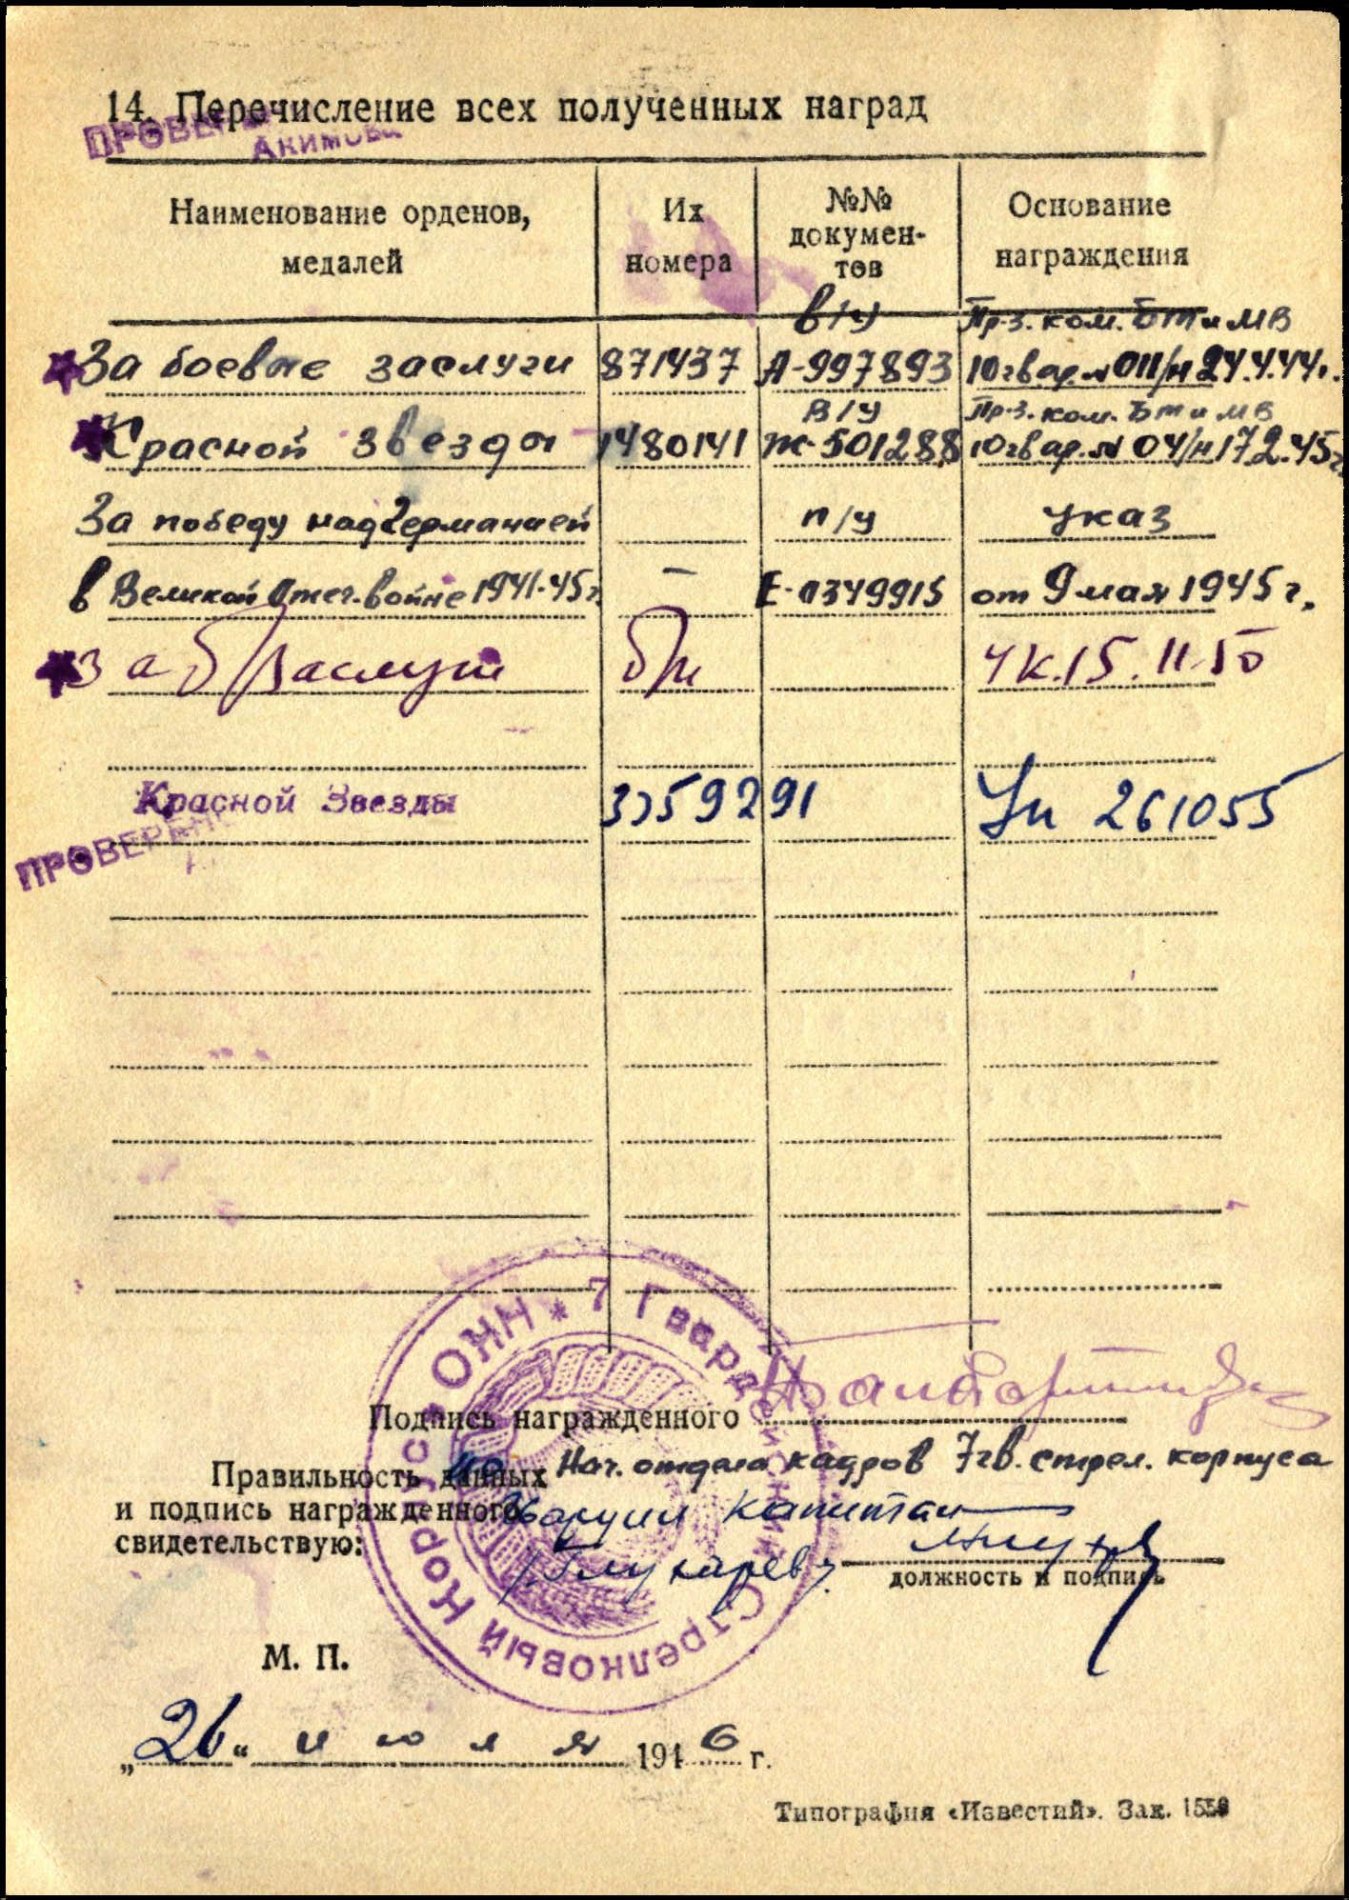 14. Перечисление всех полученных наград
ПРОВЕ
Акимова
Наименование орденов, медалей
Их номера
№№ докумен-тов
Основание награждения
в/у Пр-з. ком. БТ и МВ
За боевые заслуги 871437 А-997893 10 гв ар. № 011/н 24.4.44г.
в/у Пр-з. ком. БТ и МВ
Красной Звезды 1480141 Ж-501288 10 гв ар. № 04/н 17.2.45г
За победу над Германией п/у Указ
в Великой Отеч. войне 1941-45г. — Е-0349915 от 9 мая 1945г.
За б/заслуги б/н УК.15.11.50
Красной Звезды 3359291 Ук 261055
ПРОВЕРЕНО
7 Гвардейский Стрелковый Корпус
Подпись награжденного
Правильность данных Нач. отдела кадров 7 гв. стрел. корпуса
и подпись награжденного гвардии капитан
свидетельствую: /Глухарев/
должность и подпись
М. П.
„26“ июля 1946 г.
Типография «Известий». Зак. 1550